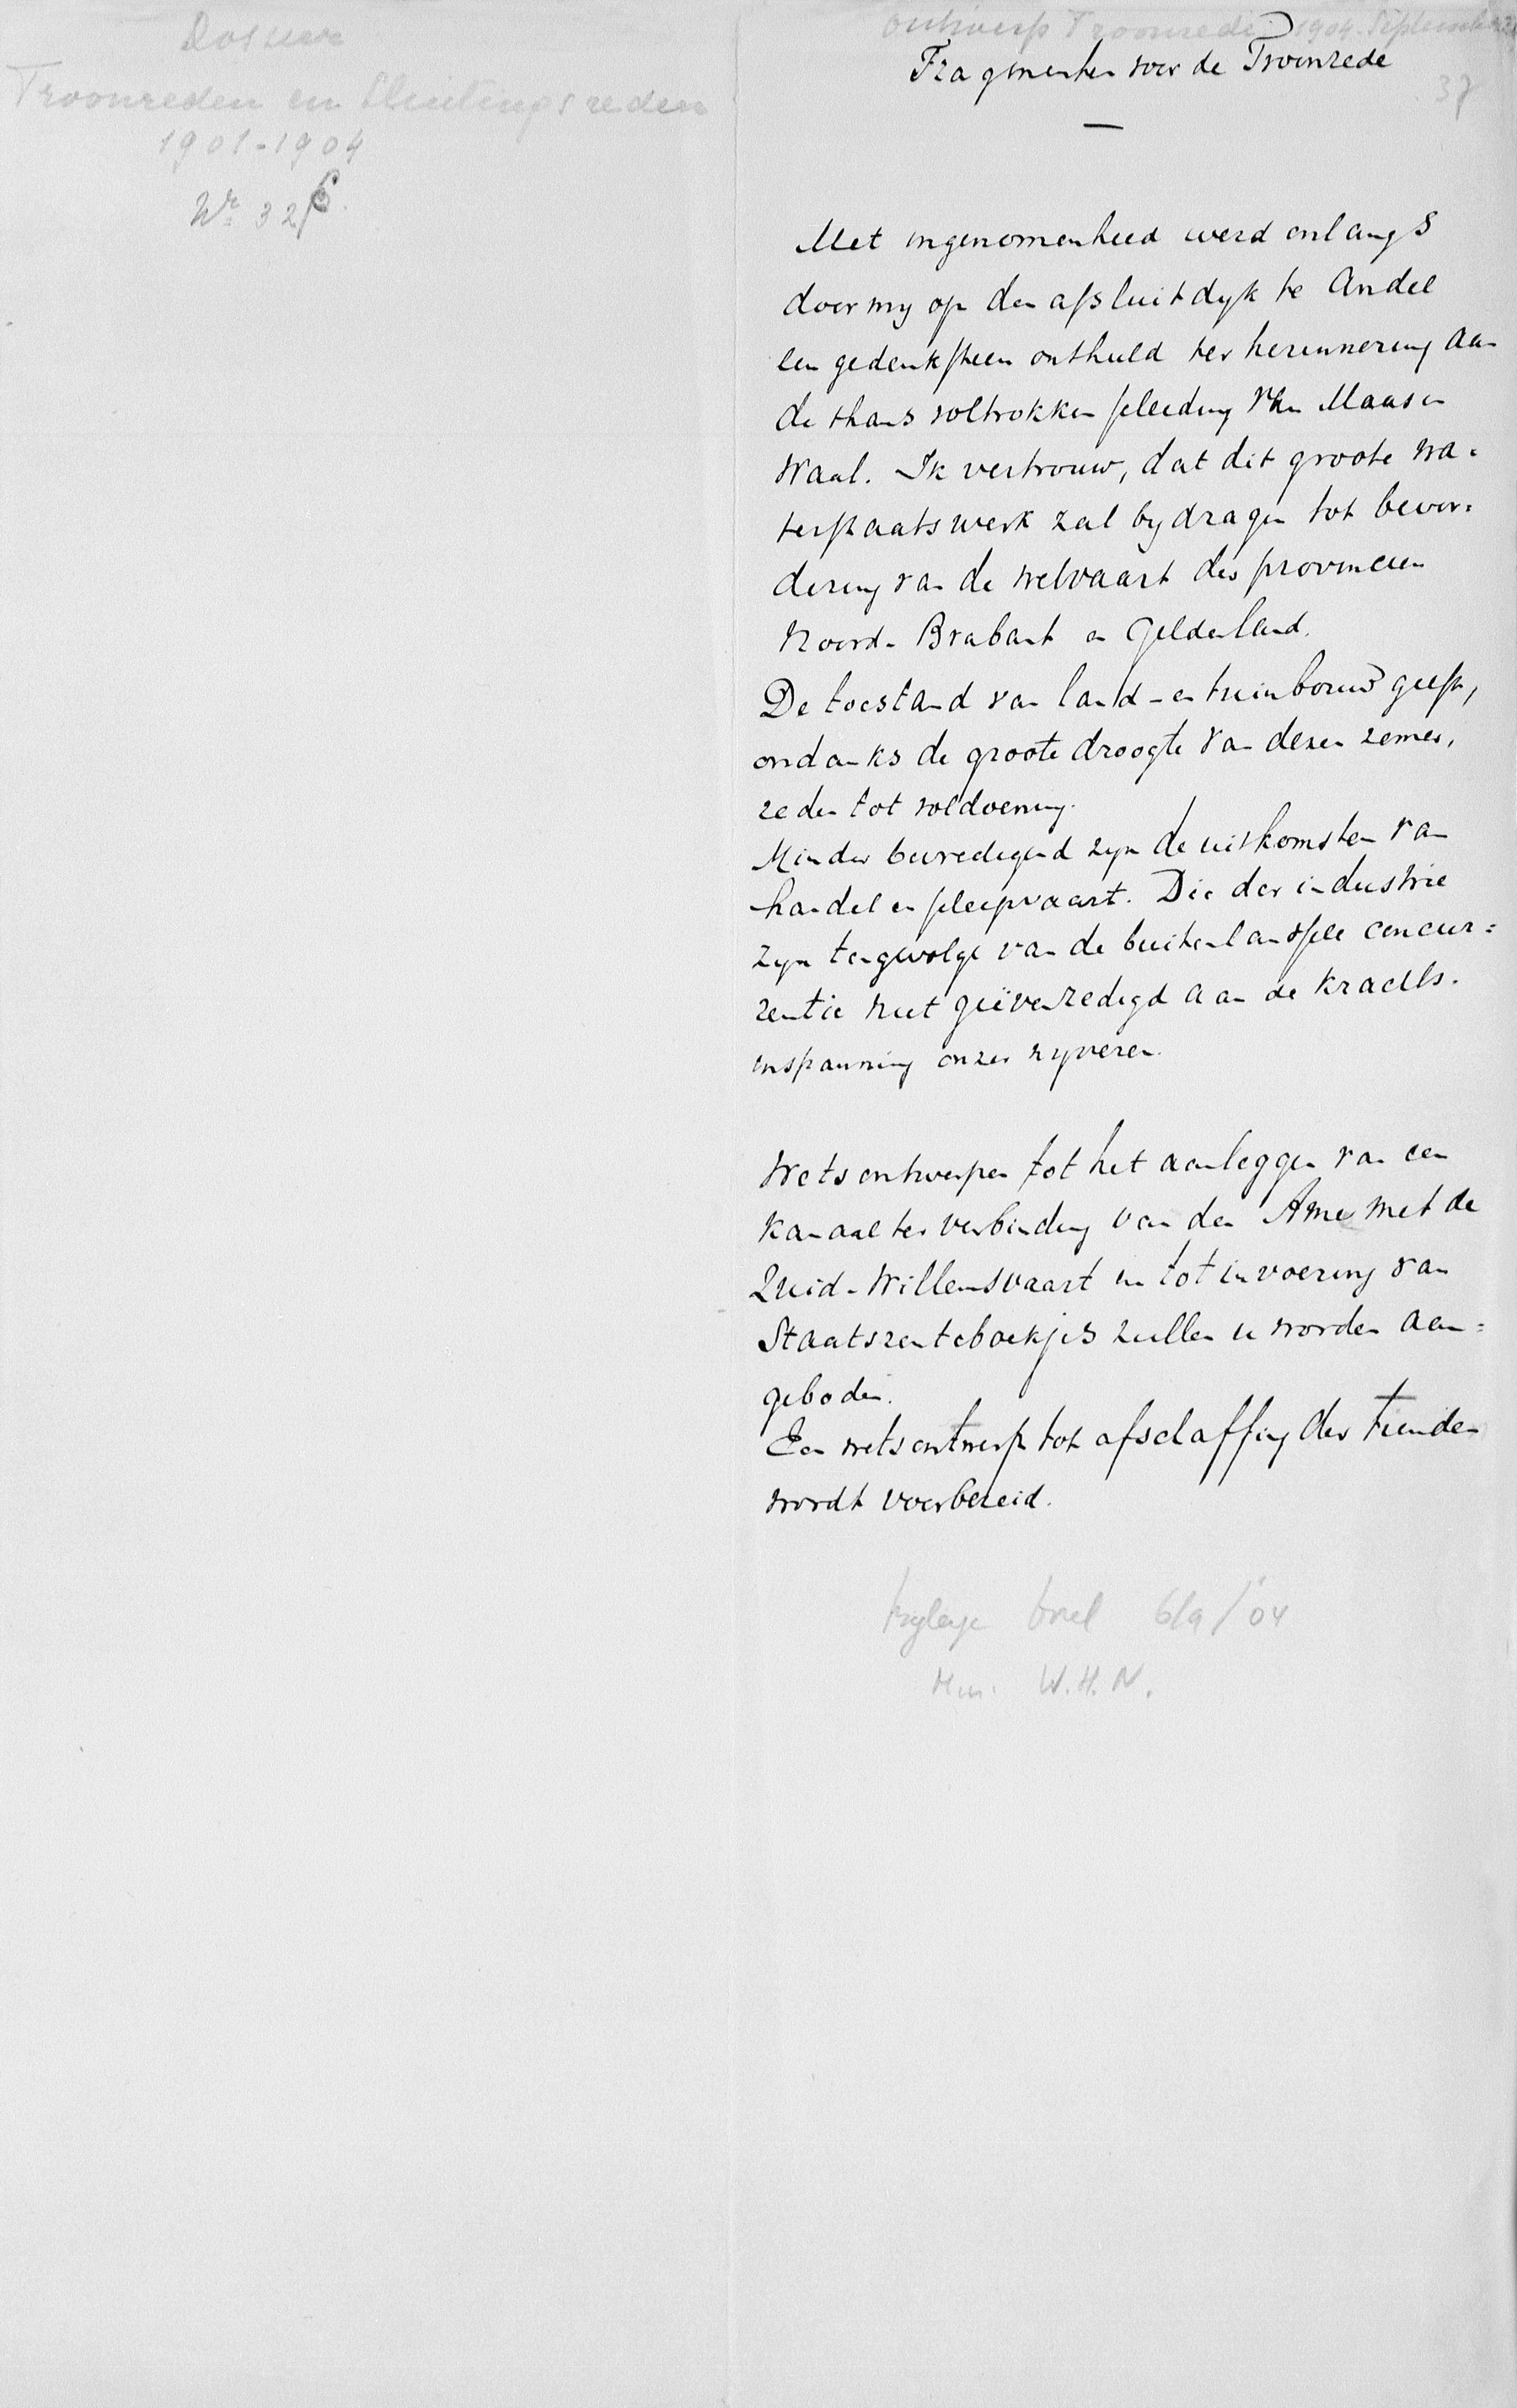 Dossier
Troonreden en Sluitingsreden
1901-1904
Nr. 326.
Ontwerp Troonrede 1904. September
37
Fragmenten voor de Troonrede
—
Met ingenomenheid werd onlangs
door my op den afsluitdyk te Andel
een gedenksteen onthuld ter herinnering aan
de thans voltrokken scheiding van Maas en
Waal. Ik vertrouw, dat dit groote wa-
terstaatswerk zal bydragen tot bevor-
dering van de welvaart der provincien
Noord-Brabant en Gelderland.
De toestand van land- en tuinbouw geeft,
ondanks de groote droogte van dezen zomer,
reden tot voldoening.
Minder bevredigend zyn de uitkomsten van
handel en scheepvaart. Die der industrie
zyn tengevolge van de buitenlandsche concur=
rentie niet geëvenredigd aan de krachts-
inspanning onzer nyveren.
Wetsontwerpen tot het aanleggen van een
kanaal ter verbinding van den Amer met de
Zuid-Willemsvaart en tot invoering van
Staatsrenteboekjes zullen u worden aan=
geboden.
Een wetsontwerp tot afschaffing der tienden
wordt voorbereid.
bylage brief 6/9/'04
Min. W.H.N.